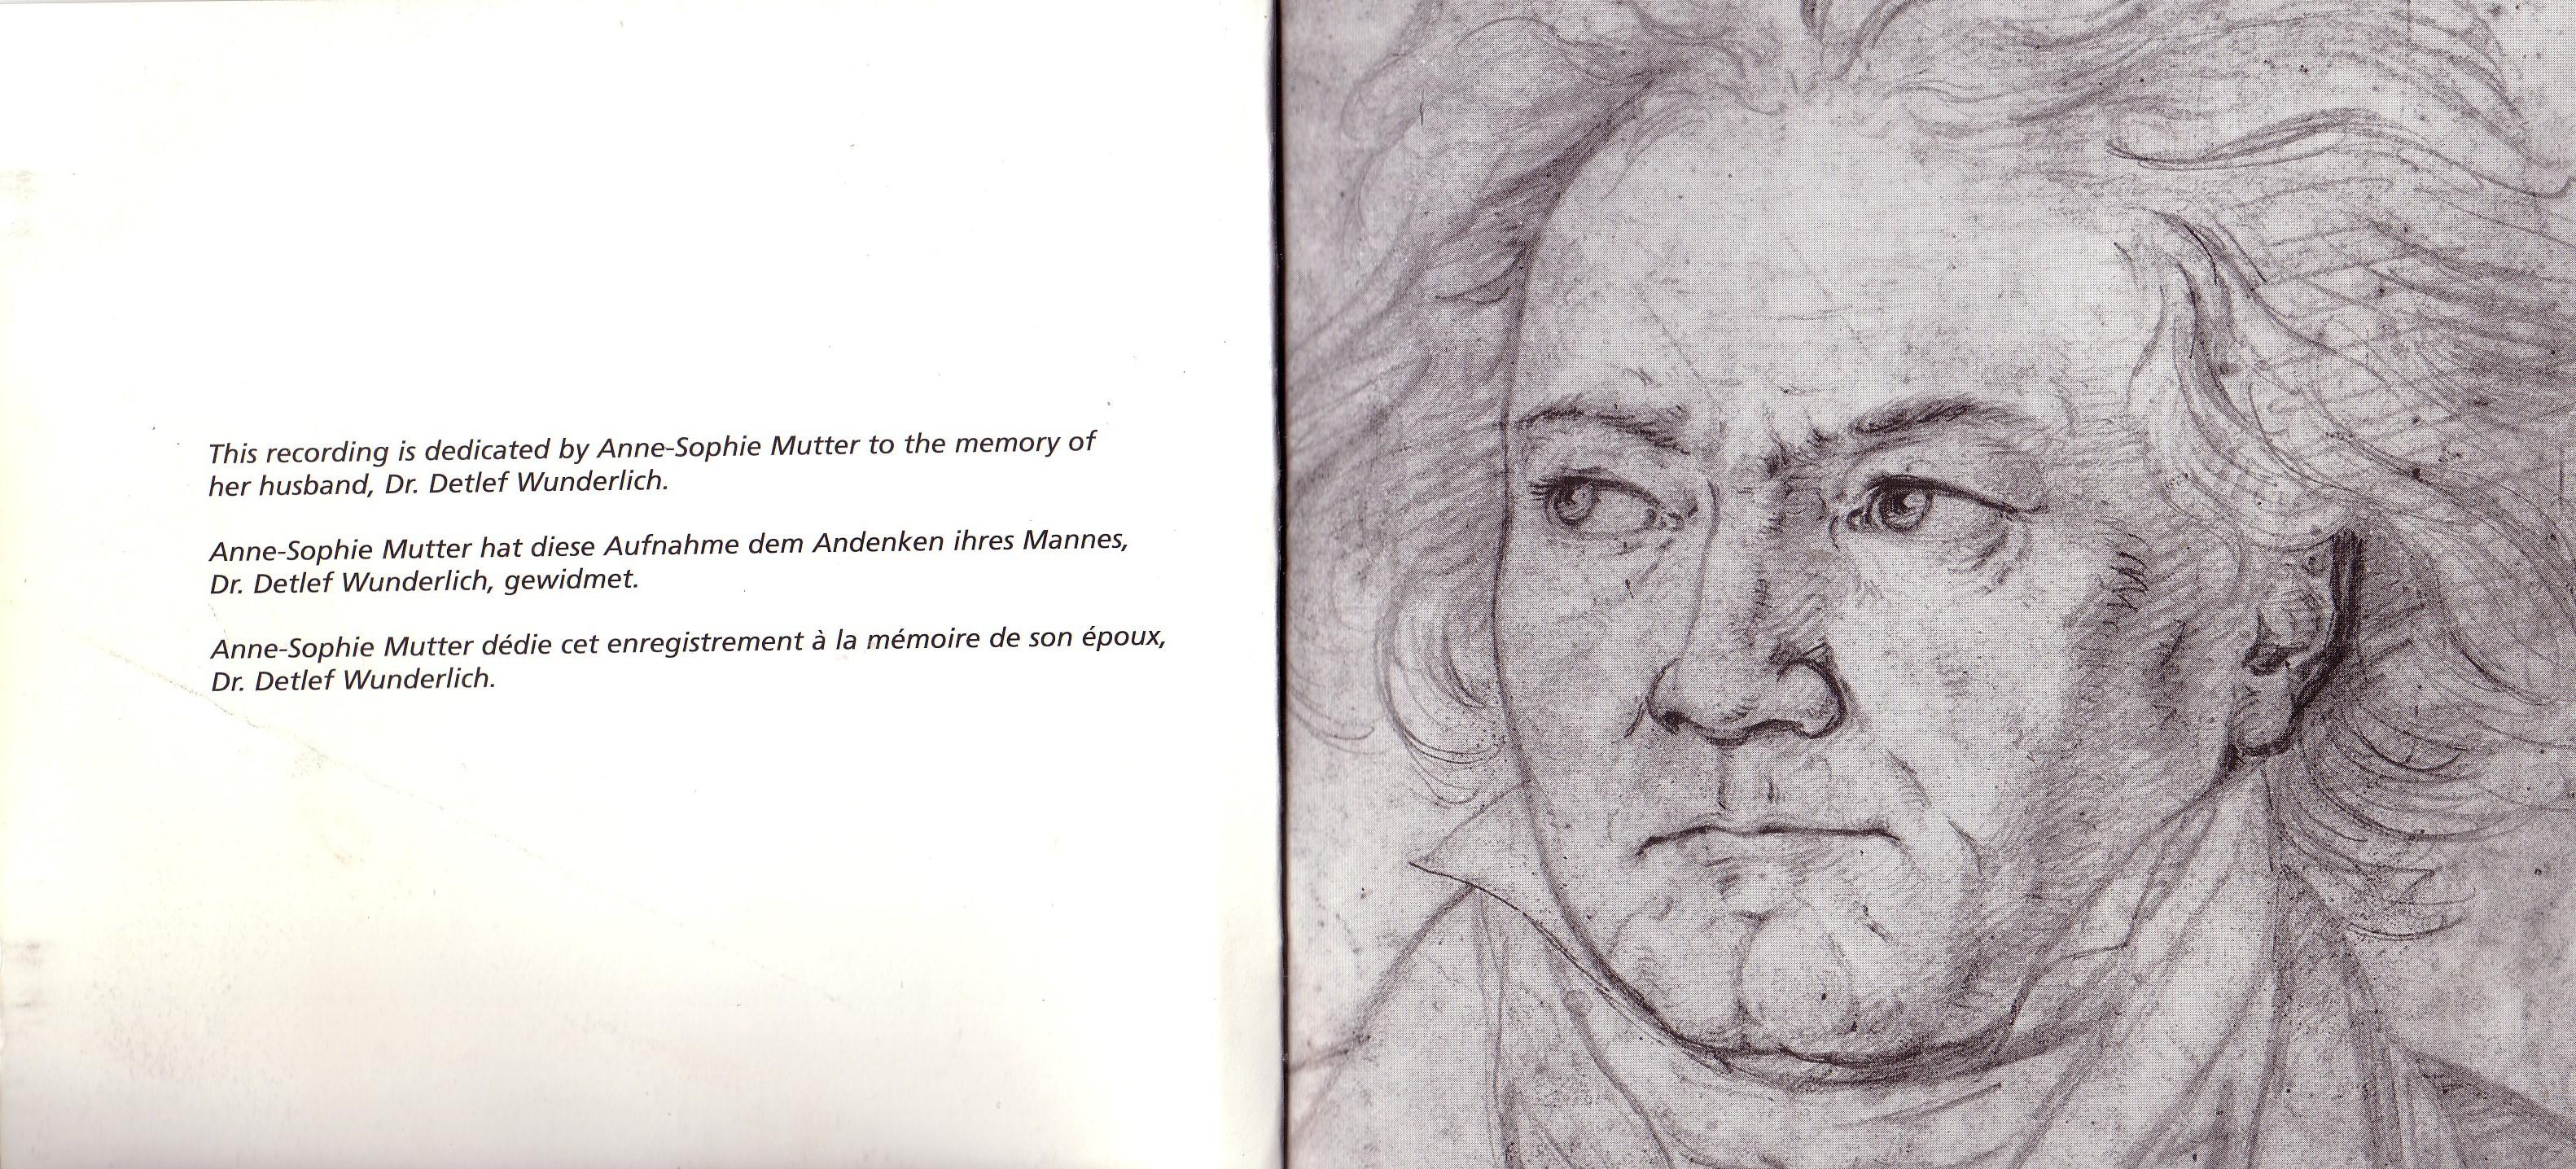 This recording is dedicated by Anne-Sophie Mutter to the memory of
her husband, Dr. Detlef Wunderlich.
Anne-Sophie Mutter hat diese Aufnahme dem Andenken ihres Mannes,
Dr. Detlef Wunderlich, gewidmet.
Anne-Sophie Mutter dédie cet enregistrement à la mémoire de son époux,
Dr. Detlef Wunderlich.